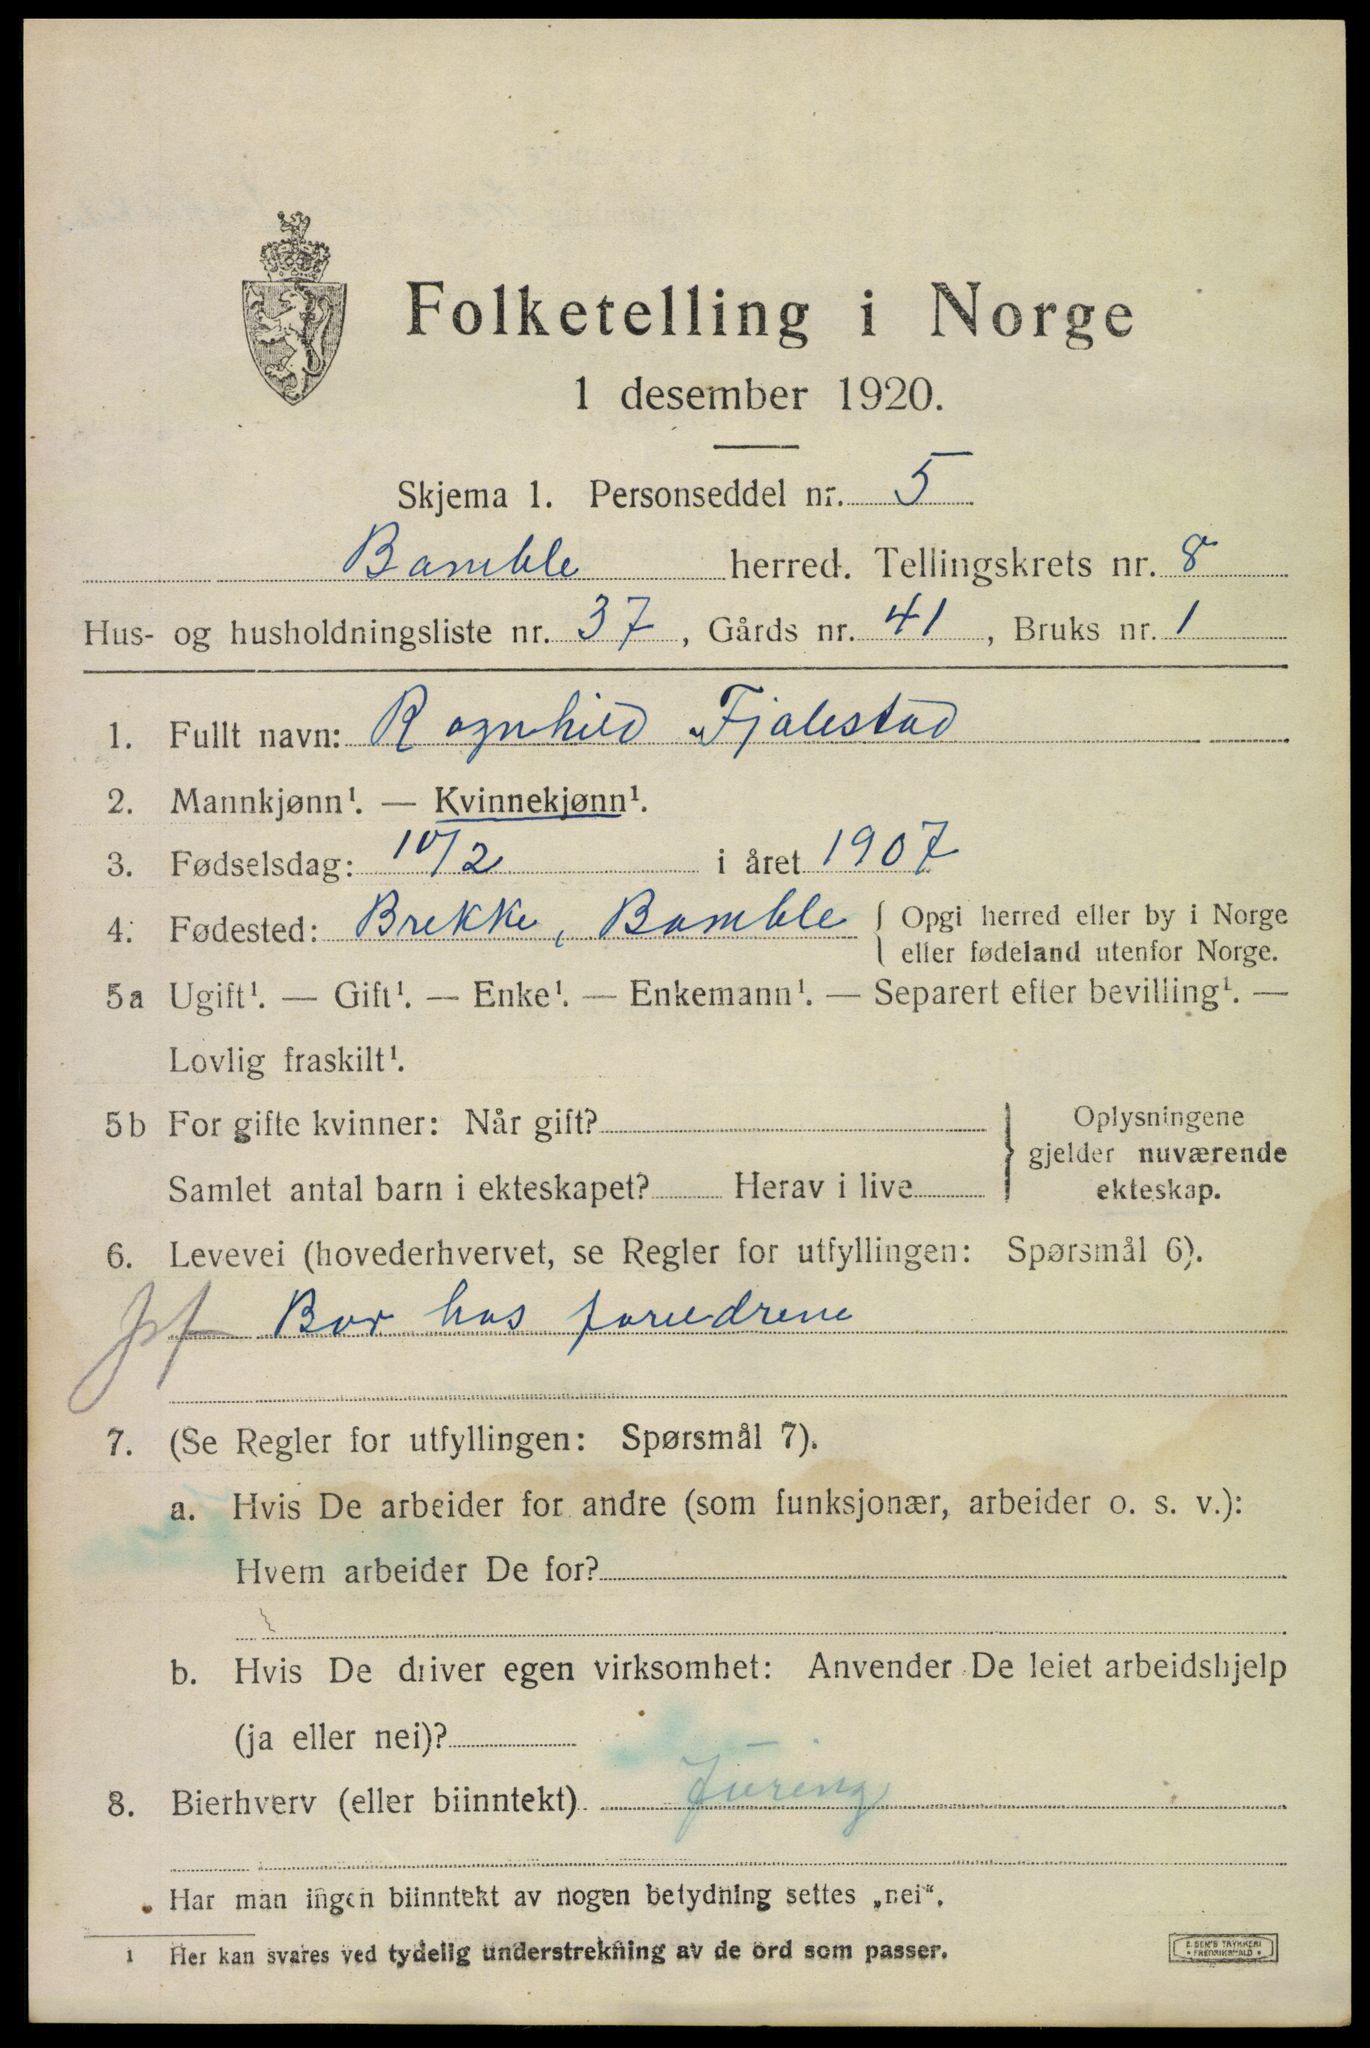 Folketelling i Norge
1 desember 1920.
Skjema 1. Personseddel nr. 5
Bamble herred. Tellingskrets nr. 8
Hus- og husholdningsliste nr. 37, Gårds nr. 41, Bruks nr. 1
1. Fullt navn: Ragnhild Fjalestad
2. Mannkjønn¹. — Kvinnekjønn¹.
3. Fødselsdag: 10/2 i året 1907
4. Fødested: Brekke, Bamble { Opgi herred eller by i Norge
eller fødeland utenfor Norge.
5a Ugift¹. — Gift¹. — Enke¹. — Enkemann¹. — Separert efter bevilling¹. —
Lovlig fraskilt¹.
5b For gifte kvinner: Når gift? } Oplysningene
gjelder nuværende
Samlet antal barn i ekteskapet? Herav i live ekteskap.
6. Levevei (hovederhvervet, se Regler for utfyllingen: Spørsmål 6).
Bor hos foreldrene
7. (Se Regler for utfyllingen: Spørsmål 7).
a. Hvis De arbeider for andre (som funksjonær, arbeider o. s. v.):
Hvem arbeider De for?
b. Hvis De driver egen virksomhet: Anvender De leiet arbeidshjelp
(ja eller nei)?
8. Bierhverv (eller biinntekt)
Har man ingen biinntekt av nogen betydning settes „nei“.
1 Her kan svares ved tydelig understrekning av de ord som passer.
E. SEM'S TRYKKERI
• FREDRIKSHALD •